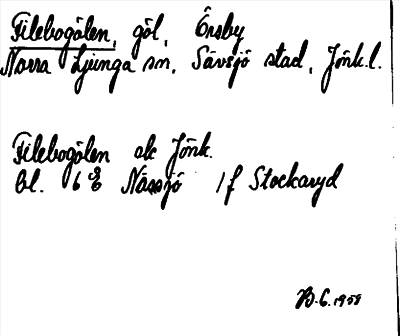 Filebogölen, göl, Örsby
Norra Ljunga sn, Sävsjö stad, Jönk.l.
Filebogölen ek Jönk.
bl. 6 E Nässjö 1f Stockaryd
B.G. 1958